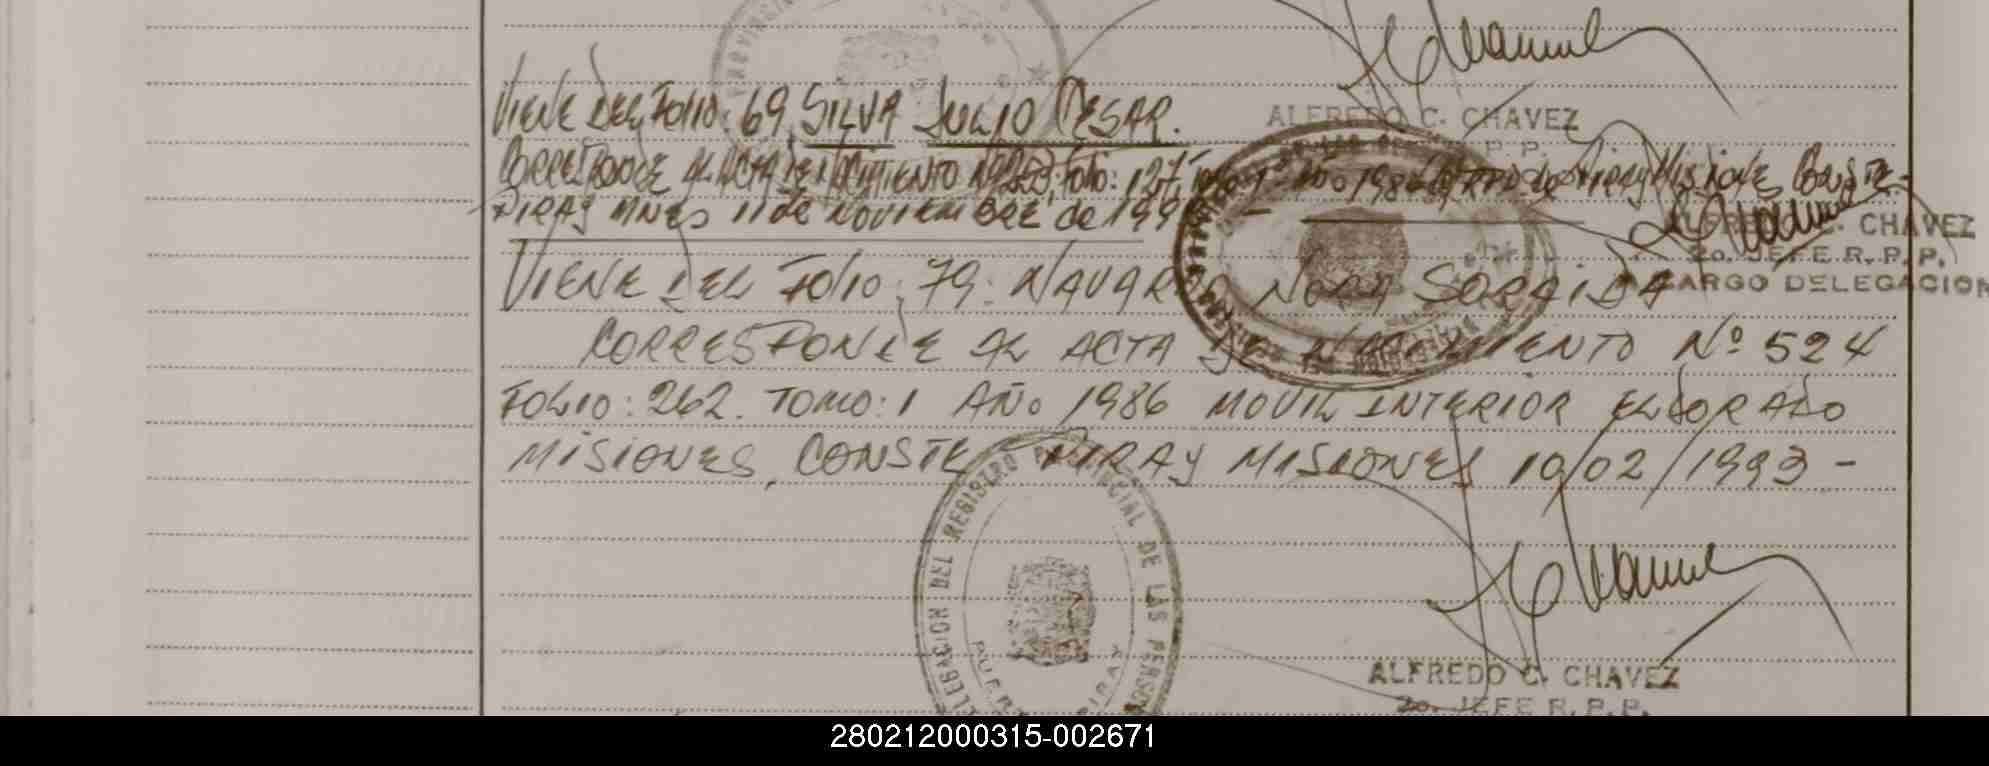 ALFREDO C. CHAVEZ
VIENE DEL FOLIO: 69. SILVA JULIO CESAR.
CORRESPONDE AL ACTA DE NACIMIENTO Folio: 127 Año 1986 PIRAY Misiones CONSTE-
PIRAY MNES 11 de NOVIEMBRE de
C. CHAVEZ
2o. JEFE R. P. P.
CARGO DELEGACION
VIENE DEL FOLIO: 79: NAVARRO NORA SORAIDA
CORRESPONDE AL ACTA DE NACIMIENTO Nº 524
FOLIO: 262. TOMO: 1 AÑO 1986 MOVIL INTERIOR ELDORADO
MISIONES, CONSTE PIRAY MISIONES 10/02/1993 -
DELEGACION DEL REGISTRO PROVINCIAL DE LAS PERSO
PUERTO PIRAY
ALFREDO C. CHAVEZ
2o. JEFE R. P. P.
280212000315-002671